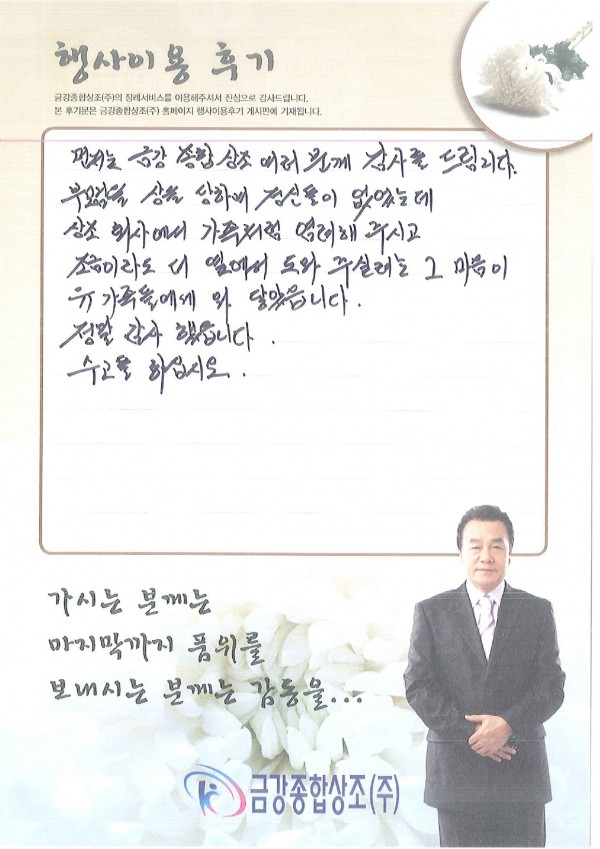 행사이용 후기
금강종합상조(주)의 장례서비스를 이용해주셔서 진심으로 감사드립니다.
본 후기문은 금강종합상조(주) 홈페이지 행사이용후기 게시판에 기재됩니다.
먼저는 금강 종합 상조 여러 분께 감사를 드립니다.
상을 당하며 정신들이 없었는데
상조 회사에서 가족처럼 염려해 주시고
조금이라도 더 옆에서 도와 주실려는 그 마음이
유가족들에게 와 닿았읍니다.
정말 감사 했읍니다.
수고들 하십시오..
가시는 분께는
마지막까지 품위를
보내시는 분께는 감동을...
금강종합상조(주)